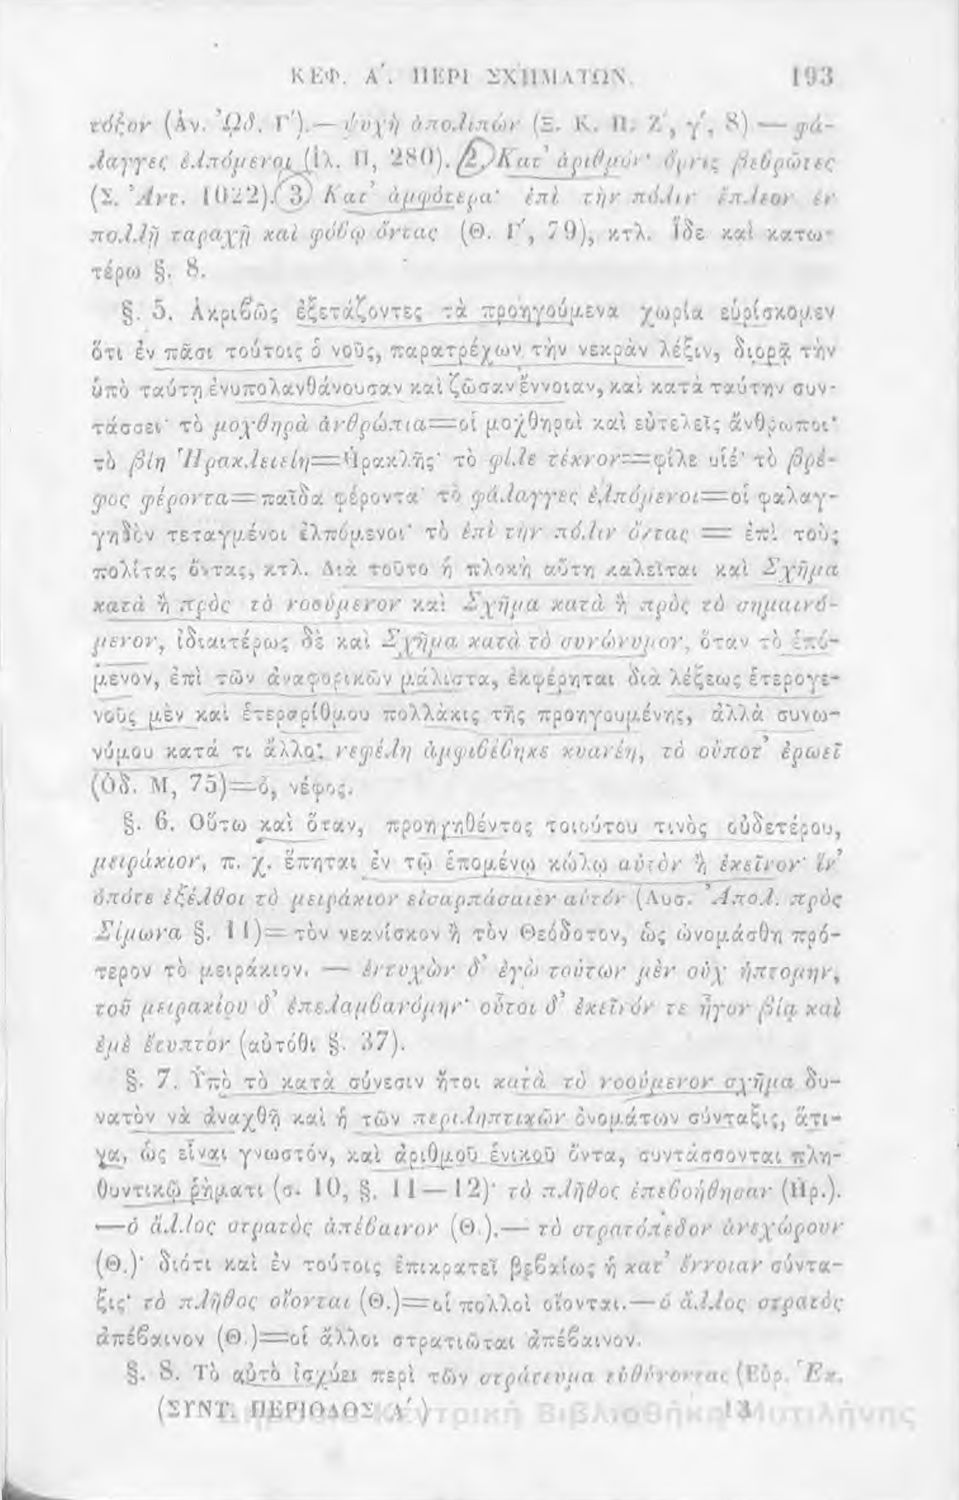 ΚΕΦ. Α΄. ΠΕΡΙ ΣΧΗΜΑΤΩΝ. 193
τόξον (Ἀν. Ὠδ. Γ΄).— ψυχὴ ἀπολιπών (Ξ. Κ. Π. Ζ΄, γ΄, 8) — φά-
λαγγες ἐλπόμενοι (Ἰλ. Π, 280). 2) Κατ’ ἀριθμόν· ὄρνις βεβρῶτες
(Σ. Ἀντ. 1022). 3) Κατ’ ἀμφότερα· ἐπὶ τὴν πόλιν ἔπλεον ἐν
πολλῇ ταραχῇ καὶ φόβῳ ὄντας (Θ. Γ΄, 79), κτλ. Ἴδε καὶ κατω-
τέρω §. 8.
§. 5. Ἀκριβῶς ἐξετάζοντες τὰ προηγούμενα χωρία εὑρίσκομεν
ὅτι ἐν πᾶσι τούτοις ὁ νοῦς, παρατρέχων τὴν νεκρὰν λέξιν, διορᾷ τὴν
ὑπὸ ταύτῃ ἐνυπολανθάνουσαν καὶ ζῶσαν ἔννοιαν, καὶ κατὰ ταύτην συν-
τάσσει· τὸ μοχθηρὰ ἀνθρώπια=οἱ μοχθηροὶ καὶ εὐτελεῖς ἄνθρωποι·
τὸ βίη Ἡρακλειείη=Ἡρακλῆς· τὸ φίλε τέκνον=φίλε υἱέ· τὸ βρέ-
φος φέροντα=παῖδα φέροντα· τὸ φάλαγγες ἐλπόμενοι=οἱ φαλαγ-
γηδὸν τεταγμένοι ἐλπόμενοι· τὸ ἐπὶ τὴν πόλιν ὄντας = ἐπὶ τοὺς
πολίτας ὄντας, κτλ. Διὰ τοῦτο ἡ πλοκὴ αὕτη καλεῖται καὶ Σχῆμα
κατὰ ἢ πρὸς τὸ νοούμενον καὶ Σχῆμα κατὰ ἢ πρὸς τὸ σημαινό-
μενον, ἰδιαιτέρως δὲ καὶ Σχῆμα κατὰ τὸ συνώνυμον, ὅταν τὸ ἑπό-
μενον, ἐπὶ τῶν ἀναφορικῶν μάλιστα, ἐκφέρηται διὰ λέξεως ἑτερογε-
νοῦς μὲν καὶ ἑτεραρίθμου πολλάκις τῆς προηγουμένης, ἀλλὰ συνω-
νύμου κατά τι ἄλλο· νεφέλη ἀμφιβέβηκε κυανέη, τὸ οὔποτ’ ἐρωεῖ
(Ὀδ. Μ, 75)=ὅ, νέφος.
§. 6. Οὕτω καὶ ὅταν, προηγηθέντος τοιούτου τινὸς οὐδετέρου,
μειράκιον, π. χ. ἕπηται ἐν τῷ ἑπομένῳ κώλῳ αὐτὸν ἢ ἐκεῖνον· ἵν’
ὁπότε ἐξέλθοι τὸ μειράκιον εἰσαρπάσαιεν αὐτόν (Λυσ. Ἀπολ. πρὸς
Σίμωνα §. 11)= τὸν νεανίσκον ἢ τὸν Θεόδοτον, ὡς ὠνομάσθη πρό-
τερον τὸ μειράκιον. — ἐντυχὼν δ’ ἐγὼ τούτων μὲν οὐχ ἡπτόμην,
τοῦ μειρακίου δ’ ἐπελαμβανόμην· οὗτοι δ’ ἐκεῖνόν τε ἦγον βίᾳ καὶ
ἐμὲ ἔτυπτον (αὐτόθι §. 37).
§. 7. Ὑπὸ τὸ κατὰ σύνεσιν ἤτοι κατὰ τὸ νοούμενον σχῆμα δυ-
νατὸν νὰ ἀναχθῇ καὶ ἡ τῶν περιληπτικῶν ὀνομάτων σύνταξις, ἅτι-
να, ὡς εἶναι γνωστόν, καὶ ἀριθμοῦ ἑνικοῦ ὄντα, συντάσσονται πλη-
θυντικῷ ῥήματι (σ. 10, §. 11 — 12)· τὸ πλῆθος ἐπεβοήθησαν (Ἡρ.).
—ὁ ἄλλος στρατὸς ἀπέβαινον (Θ.).— τὸ στρατόπεδον ἀνεχώρουν
(Θ.)· διότι καὶ ἐν τούτοις ἐπικρατεῖ βεβαίως ἡ κατ’ ἔννοιαν σύντα-
ξις· τὸ πλῆθος οἴονται (Θ.)=οἱ πολλοὶ οἴονται.—ὁ ἄλλος στρατὸς
ἀπέβαινον (Θ.)=οἱ ἄλλοι στρατιῶται ἀπέβαινον.
§. 8. Τὸ αὐτὸ ἰσχύει περὶ τῶν στράτευμα εὐθύνοντας (Εὐρ. Ἑκ.
(ΣΥΝΤ. ΠΕΡΙΟΔΟΣ Α΄.) 13
Δημόσια Κεντρική Βιβλιοθήκη Μυτιλήνης